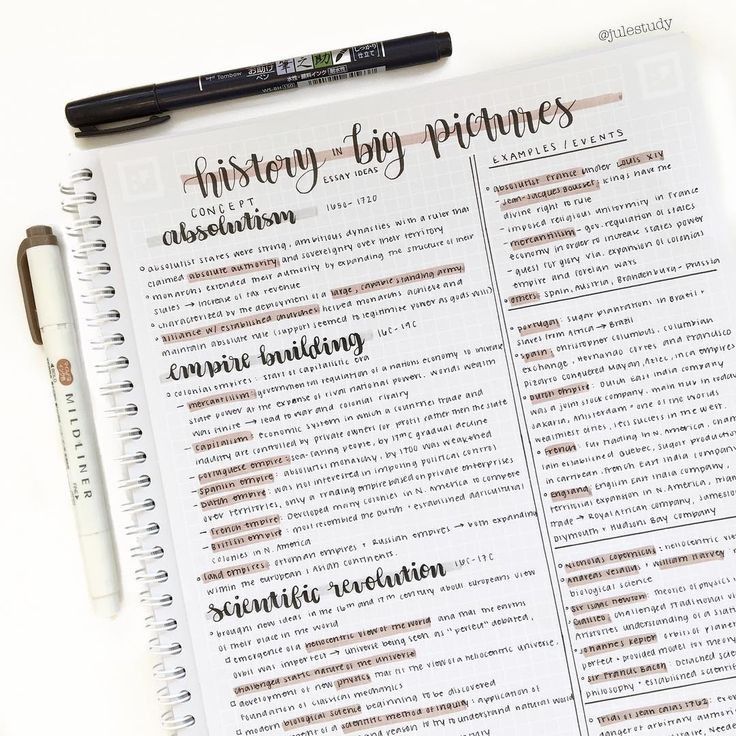 @julestudy
Tombow
お助け
ペン
筆之助
しっかり
仕立て
水性・顔料インク
MILDLINER
history in big pictures
ESSAY IDEAS
CONCEPT
absolutism 1650-1720
▫ absolutist states were strong, ambitious dynasties with a ruler that
claimed absolute authority and sovereignty over their territory
▫ monarchs extended their authority by expanding the structure of their
states → increase of tax revenue
▫ characterized by the deployment of large, capable standing army
alliance w/ established churches helped monarchs achieve and
maintain absolute rule (support seemed to legitimize power as gods will)
empire building 16C-19C
▫ colonial empires: start of capitalistic era
- mercantilism: governmental regulation of a nations economy to increase
state power at the expense of rival national powers. worlds wealth
was finite → lead to war and colonial rivalry
- capitalism: economic system in which a countries trade and
industry are controlled by private owners for profit rather then the state
- portuguese empire: sea-faring people, by 17th C gradual decline
- spanish empire: absolutist monarchy, by 1700 was weakened
- Dutch empire: was not interested in imposing political control
over territories, only a trading empire based on private enterprises
- french empire: Developed many colonies in N. America to compete
- British empire: most resembled the Dutch + established agricultural
colonies in N. America
▫ land empires: ottoman empires + Russian empires → both expanding
within the european + Asian continents.
scientific revolution 16C-17C
▫ brought new ideas in the 16th and 17th century about europeans view
of their place in the world
▫ emergence of a heliocentric view of the world and that the earths
orbit was imperfect → universe being seen as "perfect" debated,
challenged static nature of the universe
▫ development of new physics that fit the view of a heliocentric universe,
foundation of classical mechanics
▫ modern biological science beginning to be discovered
scientific method of inquiry: application of
and reason to try to understand natural world
EXAMPLES / EVENTS
▫ absolutist France under Louis XIV
- Jean-Jacques Bousset: kings have the
divine right to rule
- imposed religious uniformity in France
- mercantilism - gov. regulation of states
economy in order to increase states power
- quest for glory via. expansion of colonial
empire and foreign wars
▫ others: Spain, austria, Brandenburg-prussia
▫ portugal: sugar plantations in Brazil +
slaves from Africa → Brazil
▫ spain: christopher columbus, columbian
exchange, Hernando cortes and Francisco
pizarro conquered Mayan, Aztec, inca empires
▫ Dutch empire: Dutch East india company
was a joint stock company, main hub in today
Jakarta, Amsterdam "one of the worlds
wealthiest cities, less success in the west.
▫ french: fur trading in N. America,
established Québec, sugar production
in carribean, french East india company
▫ England: English East india company,
territorial expansion in N. America,
trade → Royal African company, Jamestown
plymouth + Hudsons Bay company
▫ Nicholas copernicus: heliocentric
Andreas vesalius + william Harvey
biological science
▫ sir isaac newton: theories of physics
Galileo challenged traditional
Aristotles understanding of a
▫ johannes kepler: orbits of
perfect + provided model for
▫ sir Francis Bacon: Detached
philosophy + established
▫ Trial of Jean calas 1762:
danger of arbitrary